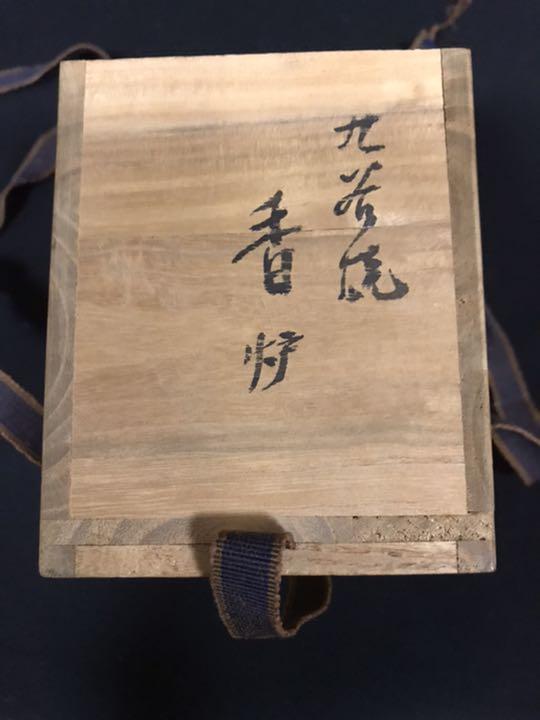 九谷焼
香炉